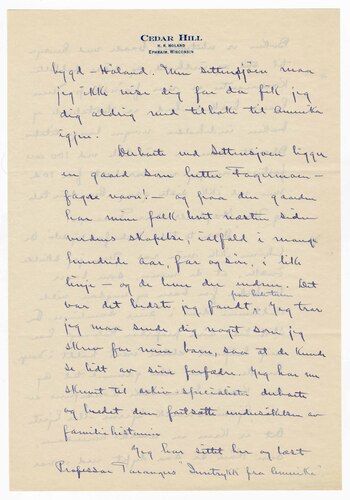 CEDAR HILL
H. R. HOLAND
EPHRAIM, WISCONSIN
bygd – Holand. Men Settensjøen maa
jeg ikke vise dig for da fik jeg
dig aldrig med tilbake til Amerika
igjen.
Derborte ved Settensjøen ligger
en gaard som heter Fagermoen –
fagre navn! – og paa den gaarden
har min folk levt næsten siden
verdens skapelse, ialfald i mange
hundrede aar, far og søn, i lik
linje – og de lever der endnu. Det
var det bedste jeg fandt, Jeg tror
jeg maa sende dig noget som jeg
skrev for mine barn, saa at de kunde
se lidt av sine forfædre. Jeg har nu
skrevet til arkiv specialister derborte
og bedet dem fortsætte undersøkelsen av
familiehistorien
Jeg har sittet her og læst
Professor Tarangers Inntrykk fra Amerika